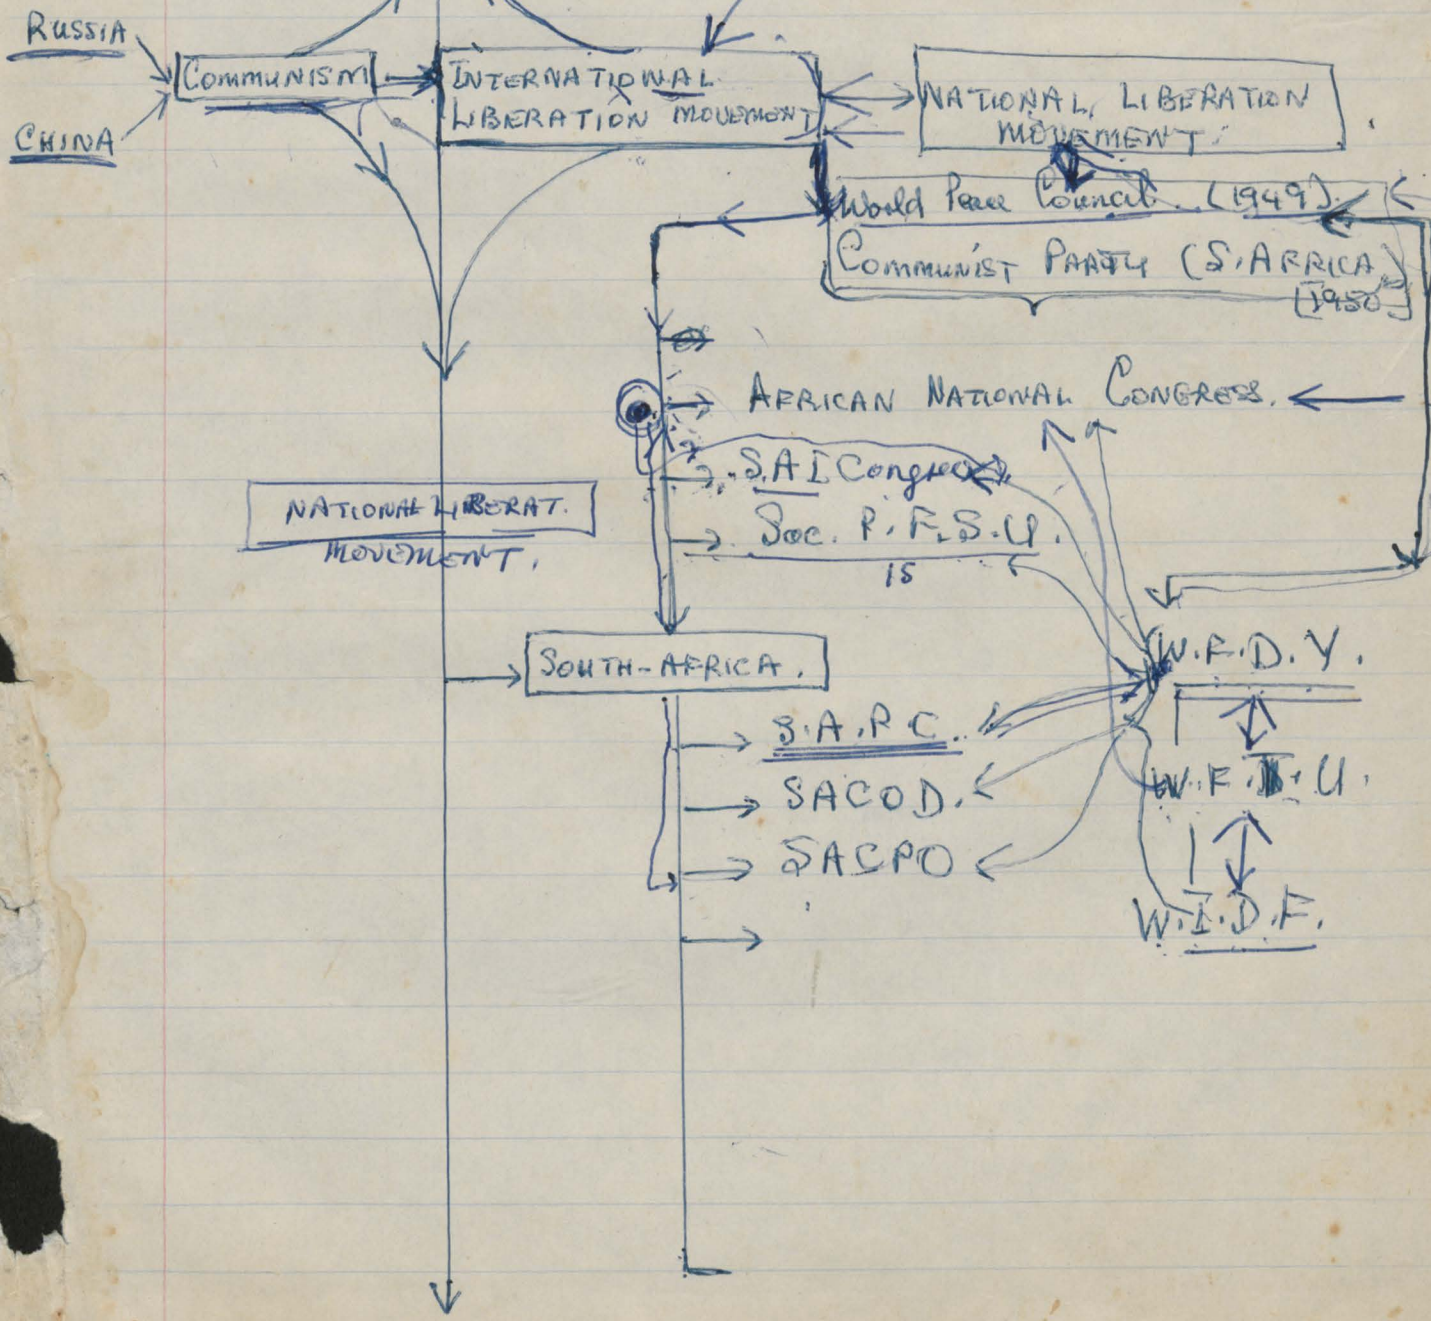 RUSSIA
COMMUNISM
CHINA
INTERNATIONAL
LIBERATION MOVEMENT
NATIONAL LIBERATION
MOVEMENT.
World Peace Council. (1949).
COMMUNIST PARTY (S. AFRICA)
[1950]
AFRICAN NATIONAL CONGRESS.
S.A.I Congress
Soc. P. F. S. U.
IS
NATIONAL LIBERAT.
MOVEMENT.
SOUTH-AFRICA.
W.F.D.Y.
S.A.P.C.
SACOD.
W.F.T.U.
SACPO
W.I.D.F.